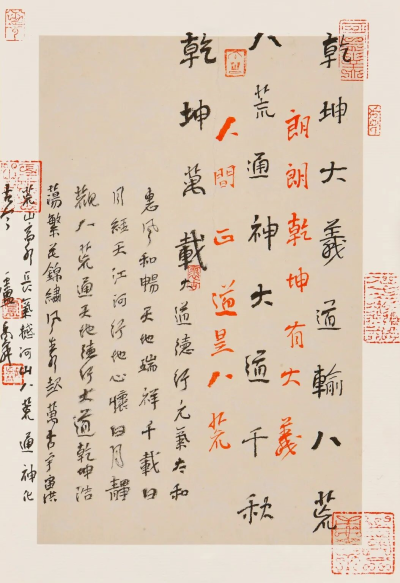 乾坤大義道輸八荒
朗朗乾坤有大義
八荒通神大道千秋
人間正道是八荒
乾坤萬載大道德行元氣太和
惠風和暢天地端祥千載日
月經天江河行地心懷日月靜
觀八荒通天地德行大道乾坤浩
蕩繁花錦繡風萬古宇宙洪
荒山高水長氣撼河山八荒通神化
古今